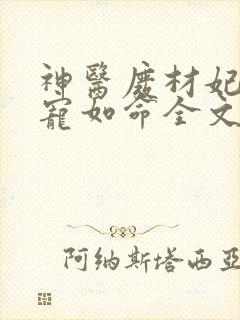 神醫廢材妃
寵如命全文
阿納斯塔西亞